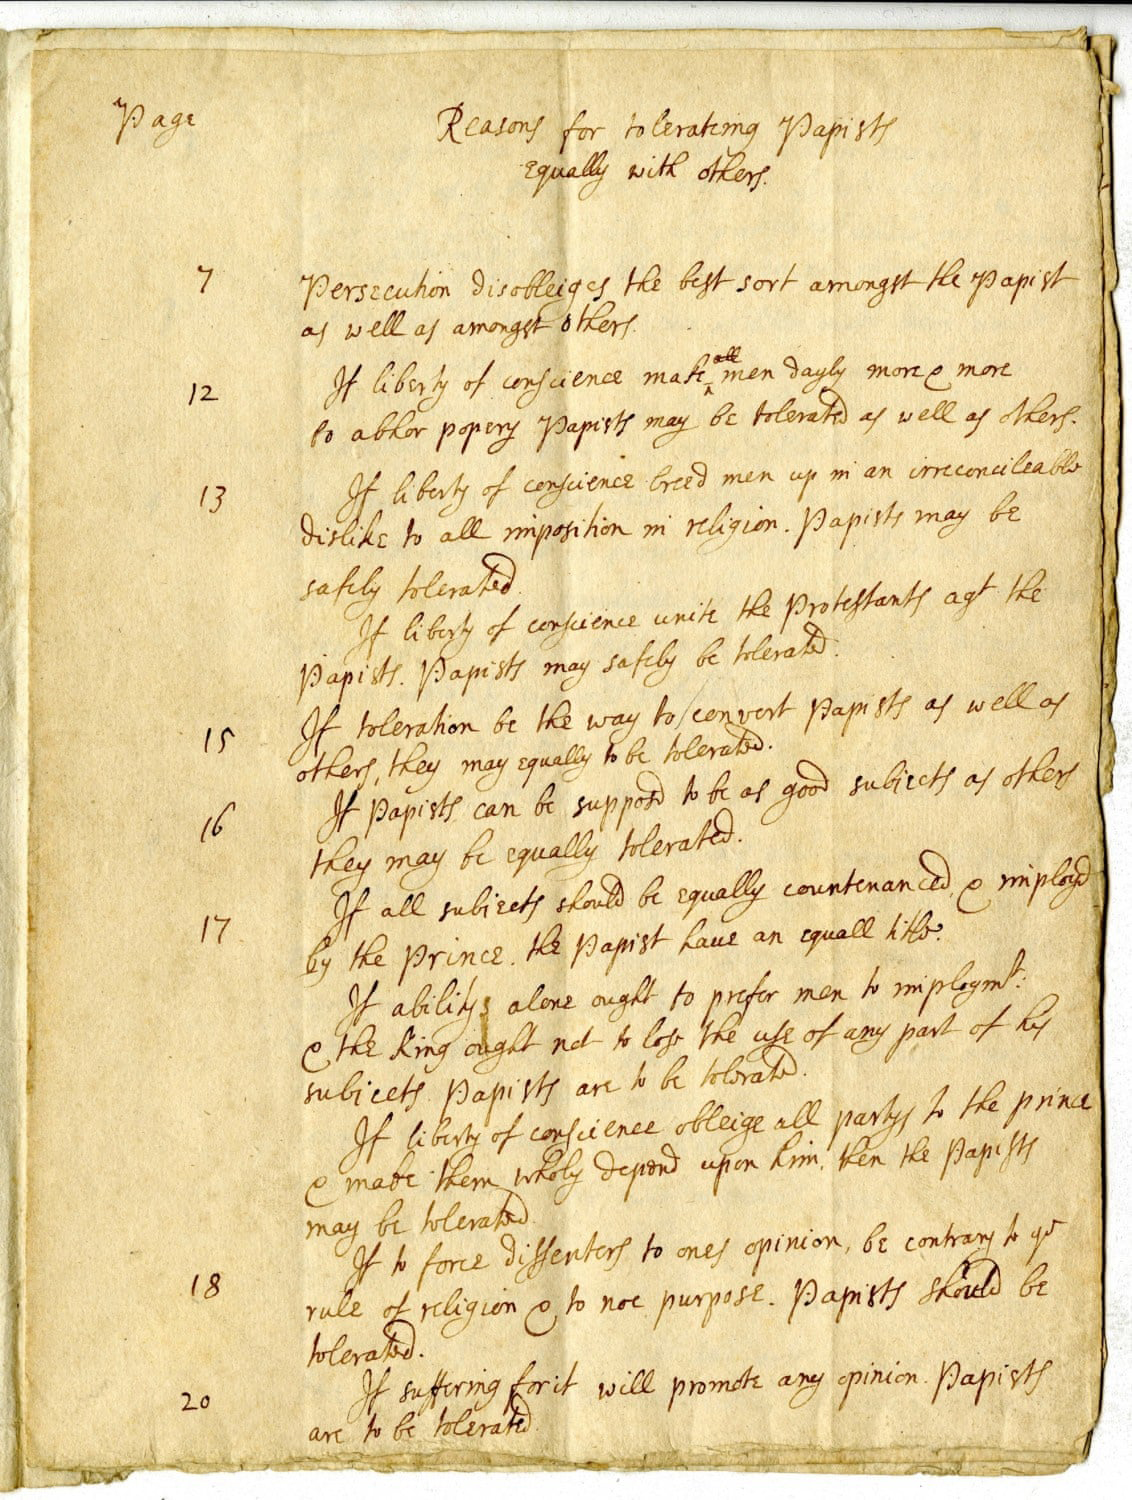 Page
Reasons for tolerateing Papists
equally with others.
7 Persecution disobleiges the best sort amongst the Papist
as well as amongst others.
12 If liberty of conscience make all men dayly more & more
to abhor popery Papists may be tolerated as well as others.
13 If liberty of conscience breed men up in an irreconcileable
dislike to all imposition in religion. Papists may be
safely tolerated.
If liberty of conscience unite the Protestants agt the
Papists. Papists may safely be tolerated.
15 If toleration be the way to convert Papists as well as
others, they may equally to be tolerated.
16 If Papists can be supposd to be as good subjects as others
they may be equally tolerated.
17 If all subjects should be equally countenanced, & imployd
by the Prince. the Papist have an equall title.
If abilitys alone ought to prefer men to imploymt:
& the King ought not to lose the use of any part of his
subjects. Papists are to be tolerated.
If liberty of conscience obleige all partys to the prince
& make them wholy depend upon him, then the Papists
may be tolerated.
18 If to force dissenters to ones opinion, be contrary to ye
rule of religion & to noe purpose. Papists should be
tolerated.
20 If suffering for it will promote any opinion. Papists
are to be tolerated